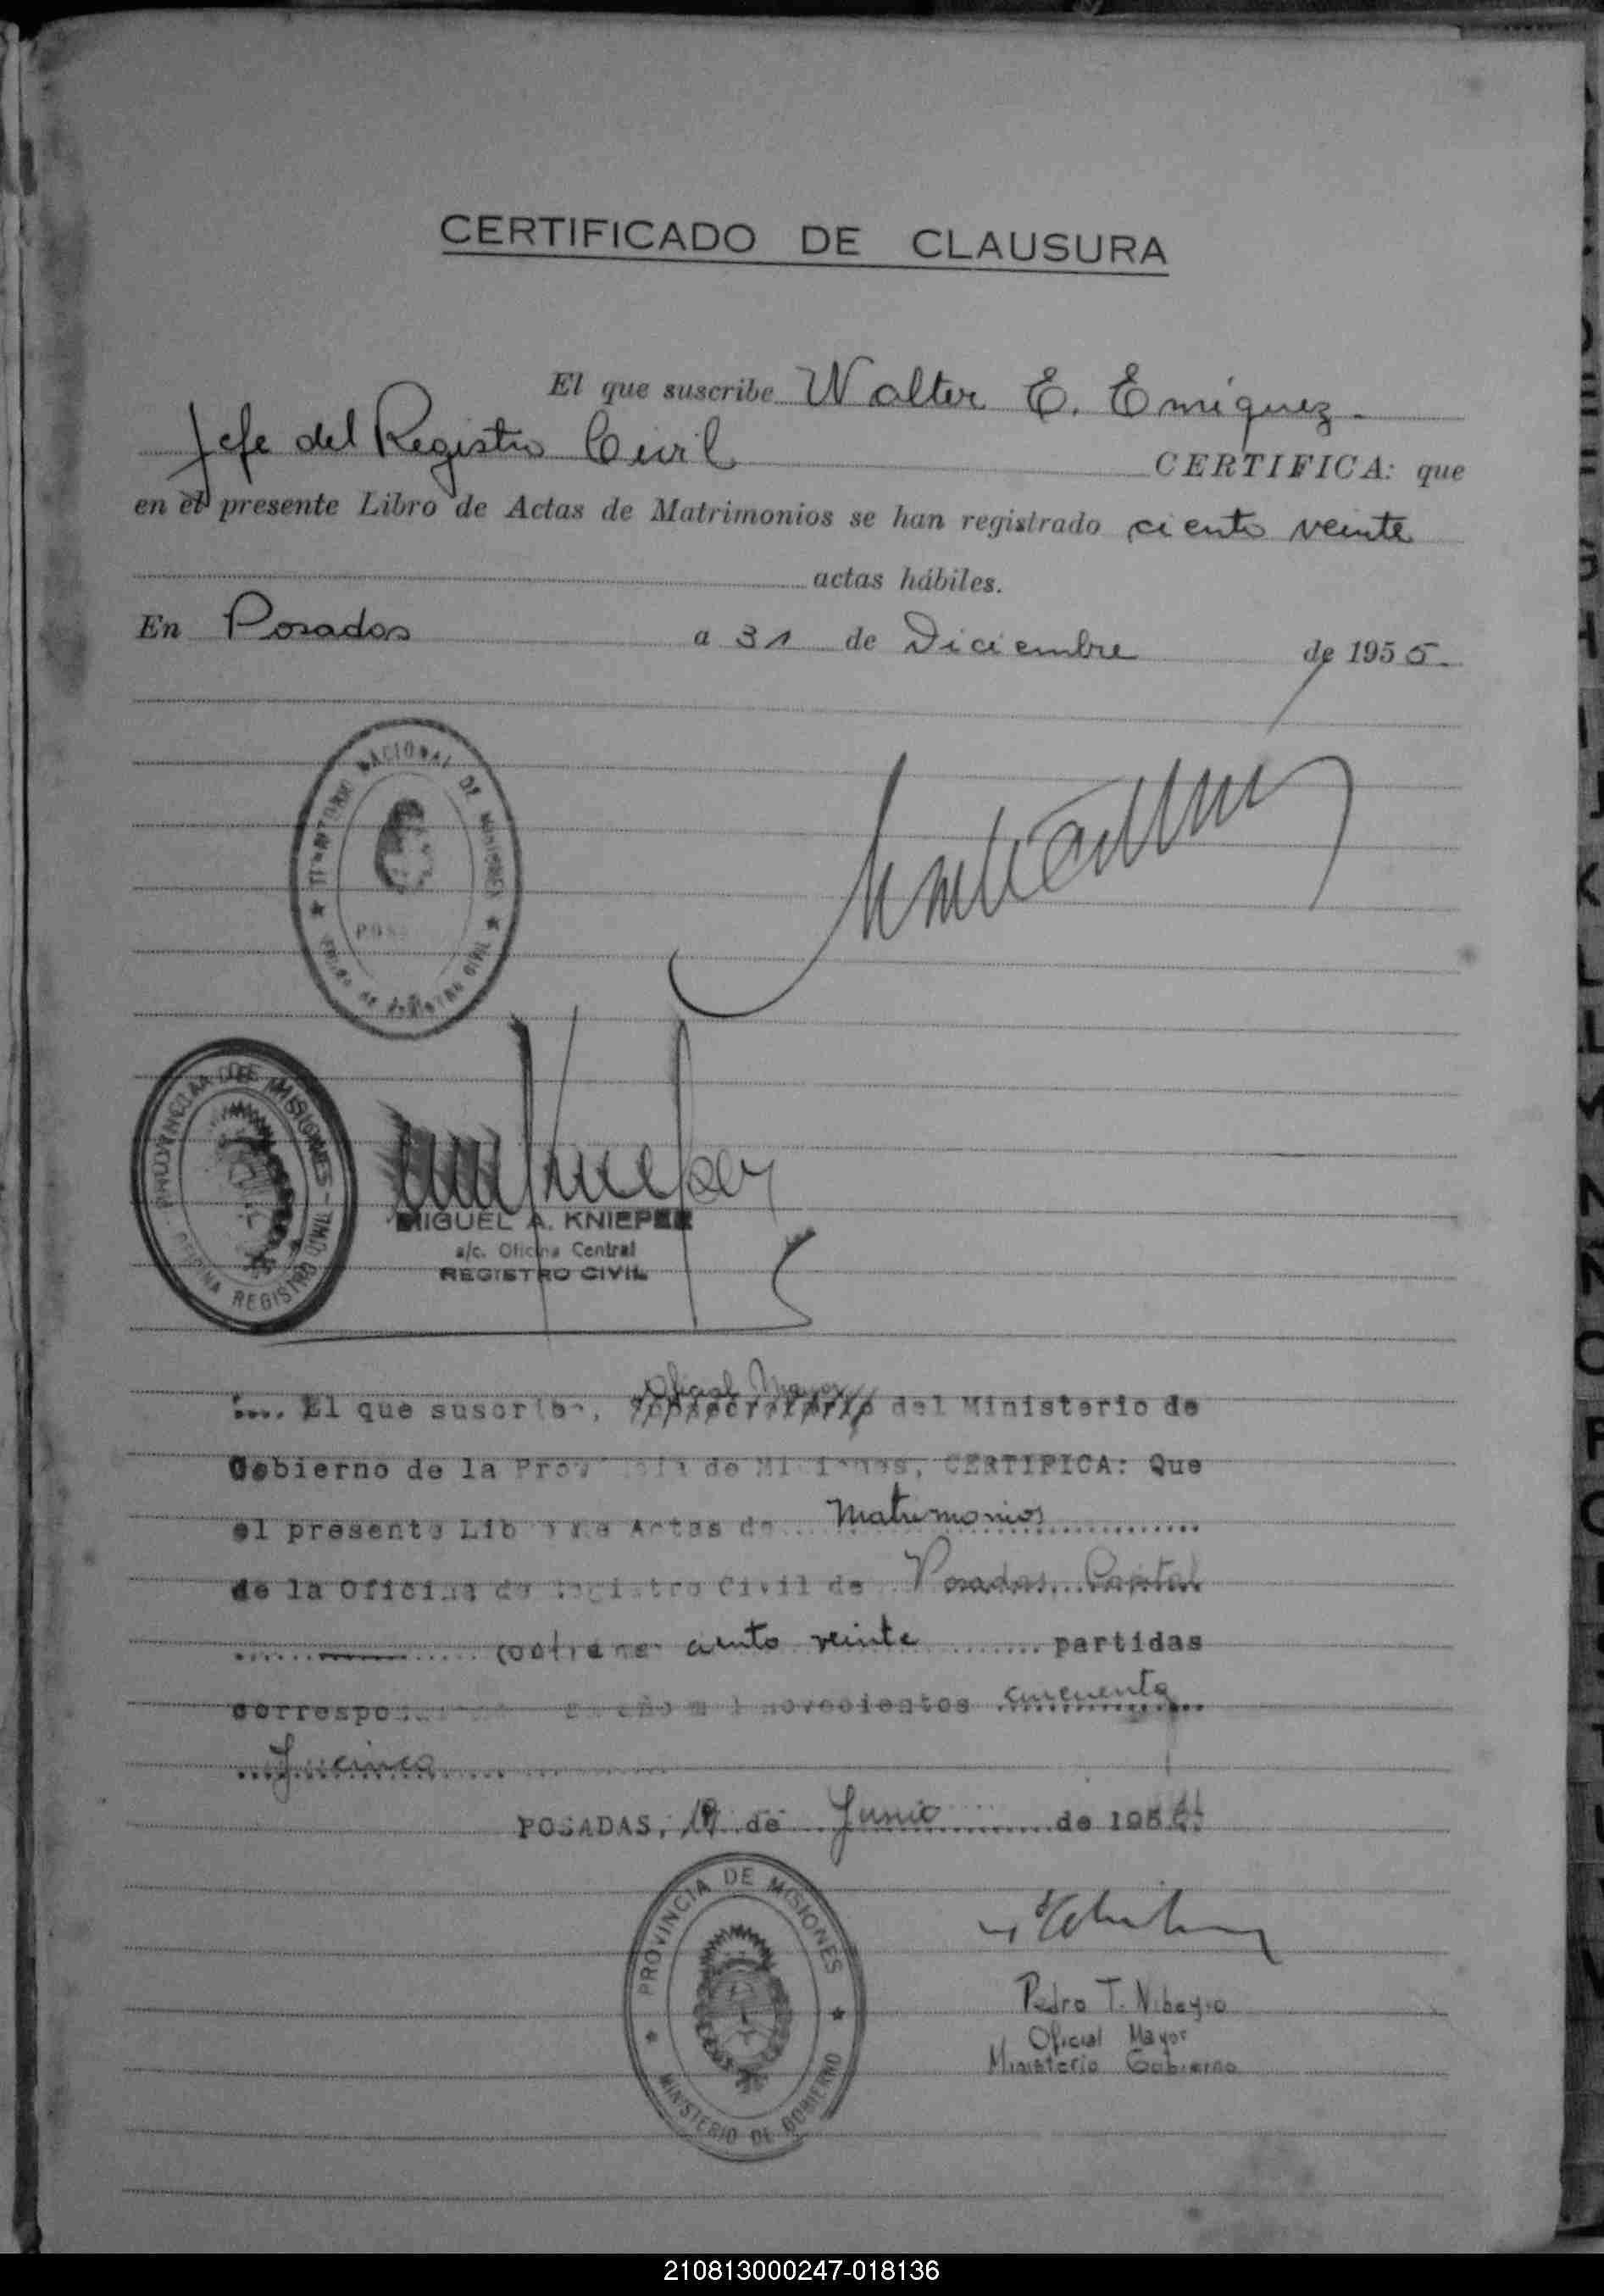 CERTIFICADO DE CLAUSURA
El que suscribe Walter E. Enriquez.
Jefe del Registro Civil CERTIFICA: que
en el presente Libro de Actas de Matrimonios se han registrado ciento veinte
actas hábiles.
En Posadas a 31 de Diciembre de 1955.
TERRITORIO NACIONAL DE MISIONES
POS
REGISTRO CIVIL
PROVINCIA DE MISIONES -
OFICINA REGISTRO
MIGUEL A. KNIEPER
a/c. Oficina Central
REGISTRO CIVIL
Oficial Mayor
.... El que suscribe, Subsecretario del Ministerio de
Gobierno de la Provincia de Misiones, CERTIFICA: Que
el presente Libro de Actas de Matrimonios
de la Oficina de Registro Civil de Posadas Capital
contiene ciento veinte partidas
correspo año mil novecientos cincuenta
y cinco
POSADAS, 19 de Junio de 195
PROVINCIA DE MISIONES
MINISTERIO DE GOBIERNO
Pedro T.
Oficial Mayor
Ministerio Gobierno
210813000247-018136